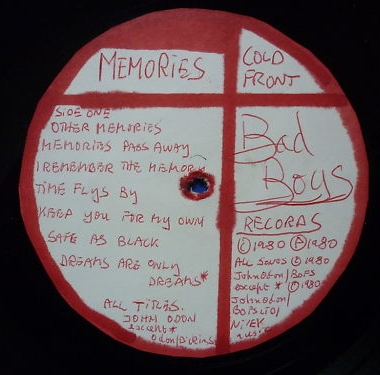 MEMORIES
SIDE ONE
OTHER MEMORIES
MEMORIES PASS AWAY
I REMEMBER THE MEMORY
TIME FLYS BY
KEEP YOU FOR MY OWN
SAFE AS BLACK
DREAMS ARE ONLY
DREAMS*
ALL TITLES.
JOHN ODON
except*
Odon/
COLD
FRONT
Bad
Boys
RECORDS
Ⓒ1980 Ⓟ1980
ALL SONGS Ⓒ 1980
John Odon/
except * Ⓒ 1980
John Odon/